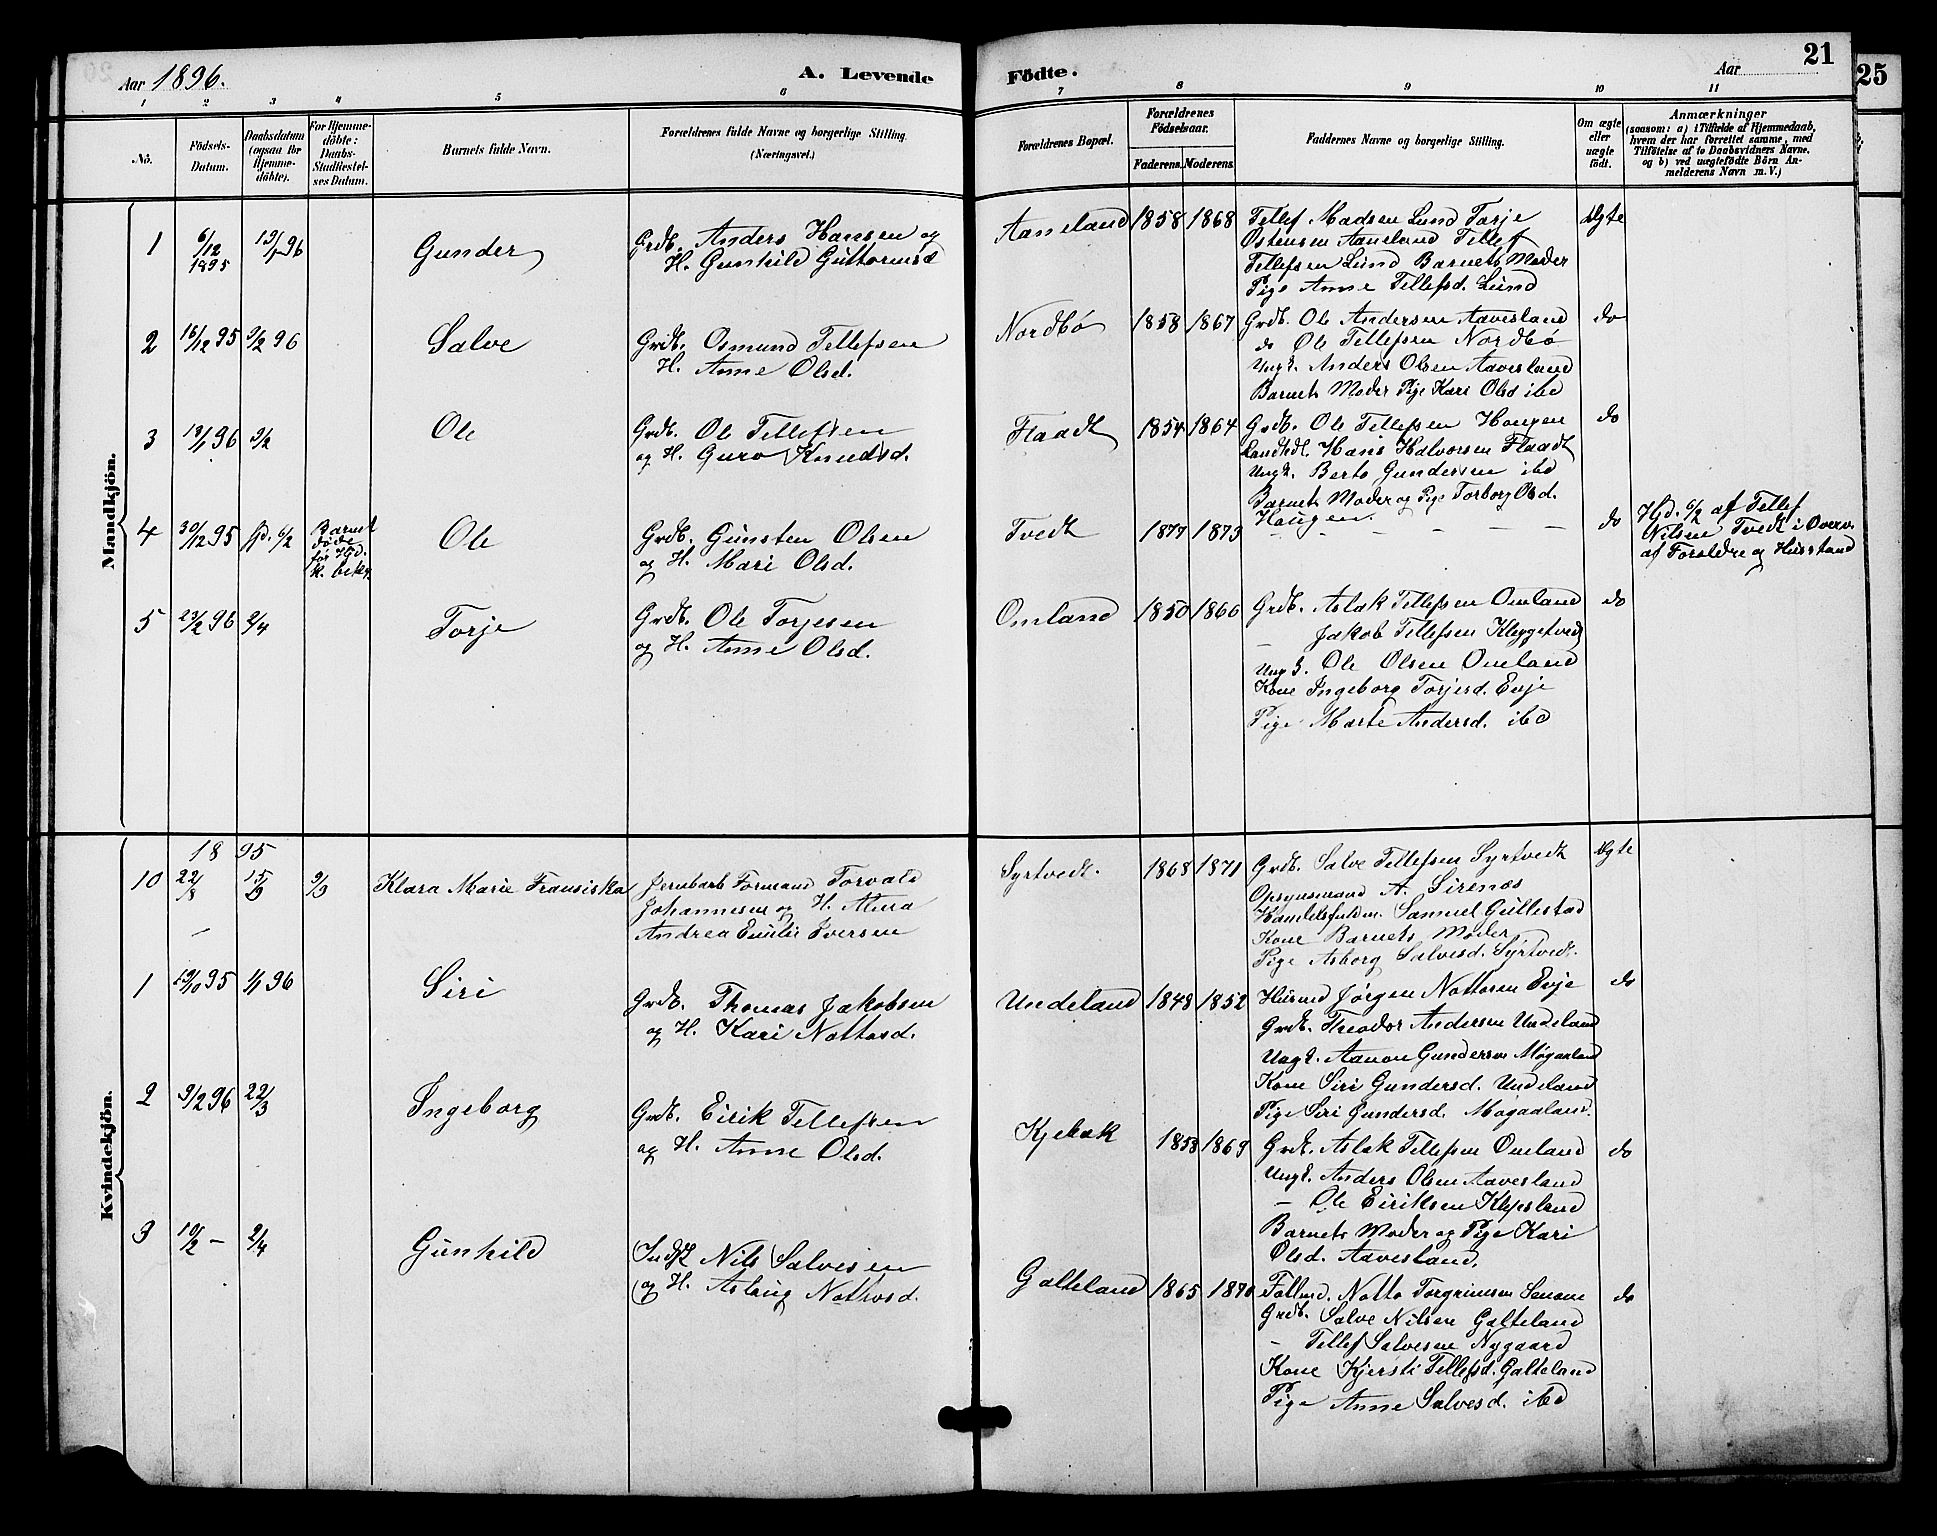 Aar 1896. A. Levende Födte. Aar 21
25
1 2 3 4 5 6 7 8 9 10 11
No. Födsels-Datum. Daabsdatum (ogsaa for Hjemme-döbte). For Hjemme-döbte: Daabs-Stadfæstel-ses Datum. Barnets fulde Navn. Forældrenes fulde Navne og borgerlige Stilling. (Næringsvei.)
Forældrenes Bopæl. Forældrenes Födselsaar. Faderens. Moderens. Faddernes Navne og borgerlige Stilling. Om ægte eller uægte födt.
Anmærkninger
(saasom: a) i Tilfælde af Hjemmedaab,
hvem der har forrettet samme, med
Tilföielse af to Daabsvidners Navne,
og b) ved uægtefödte Börn An-
melderens Navn m. V.)
Mandkjön.
1 6/12 1895 19/1 96 Gunder Grdb. Anders Hansen og
H. Gunhild Guttormsd
Aaneland 1858 1868 Tellef Madsen Lund Tarje Ægte
Ostensen Aaneland Tellef
Tellefsen Lund Barnets Moder
Pige Anne Tellefsd. Lund
2 16/12 95 9/2 96 Salve Grdb. Osmund Tellefsen
H. Anne Olsd.
Nordbø 1858 1867 Grdb. Ole Andersen Aavesland do
do Ole Tellefsen Nordbø
Ungk. Anders Olsen Aavesland
Barnets Moder Pige Kari Olsd ibd
3 19/1 96 9/2 Ole Grdb. Ole Tellefsen
og H. Guro Knudsd.
Flaadt 1854 1864 Grdb. Ole Tellefsen Haugen do
Hans Halvorsen Flaadt
Ungk. Gundersen ibd
Barnets Moder og Pige Torborg Olsd.
Haugen.
4 30/12 95 Barnet døde før Ole Grdb. Gunsten Olsen
og H. Mari Olsd.
Tvedt 1873 – – – – – do
Hd. 6/2 af Tellef
Nilsen Tvedt i Overv.
af Forældre og Husstand
5 23/2 96 2/4 Torje Grdb. Ole Torjesen
og H. Anne Olsd.
Omland 1850 1866 Grdb. Aslak Tellefsen Omland do
– Jakob Tellefsen Kleggetvedt
Ungk. Ole Olsen Omland
Kone Ingeborg Torjesd. Evje
Pige Marte Andersd. ibd
Kvindekjön.
18 95
10 22/8 15/9 9/9 Klara Marie Fransiska Jernbarb Formand Torvald
Johannesen og H. Alma
Andrea Emilie Iversen
–
Syrtvedt. 1868 1871 Grdb. Salve Tellefsen Syrtvedt Ægte
Opsynsmand A. Sirenæs
Handelsfuldm. Samuel Gullestad
Kone Barnets Moder
Pige Asborg Salvesd. Syrtvedt.
1 19/10 95 1/1 96 Siri Grdb. Thomas Jakobsen
og H. Kari Nottosd.
Undeland 1848 1852 Husmd Jørgen Nottosen Evje do
Grdb. Theodor Andersen Undeland
Ungk. Aanon Gundersen Møgaaland
Kone Siri Gundersd. Undeland
Pige Siri Gundersd. Møgaaland.
2 9/2 96 22/3 Ingeborg Grdb. Eirik Tellefsen
og H. Anne Olsd.
Kjebæk 1858 1869 Grdb. Aslak Tellefsen Omland do
Ungk. Anders Olsen Aavesland
– Ole Eiriksen Klepesland
Barnets Moder og Pige Kari
Olsd. Aavesland.
3 10/2 – 2/4 Gunhild Indst Nils Salvesen
og H. Aslaug Nottosd.
Galteland 1865 1870 Føllmd. Notto Torgrimsen Senum do
Grdb. Salve Nilsen Galteland
– Tellef Salvesen Nygaard
Kone Kjersti Tellefsd. Galteland
Pige Anne Salvesd. ibd